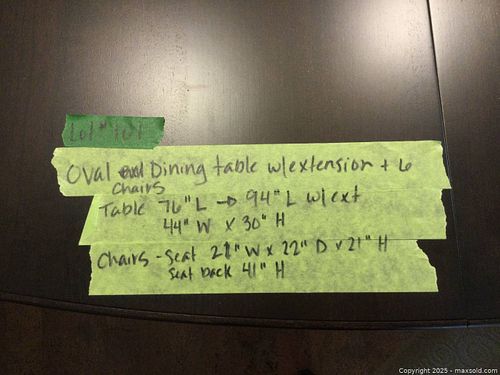 Lot # 101
Oval Dining table w/extension + 6
Chairs
Table 76" L → 94" L w/ext
44" W x 30" H
Chairs - Seat 21" W x 22" D x 21" H
Seat back 41" H
Copyright 2025 - maxsold.com